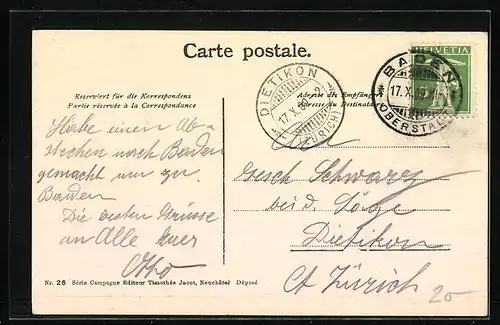 Carte postale.
HELVETIA
BADEN
17.X.
OBERSTADT
DIETIKON
17.X.
(ZÜRICH)
Reserviert für die Korrespondenz
Partie réservée à la Correspondance
Adresse des Empfängers
Adresse du Destinataire
Habe einen Ab-
stecher nach Baden
gemacht um zu
Baden
Die besten Grüsse
an Alle Euer
Otto
An
Gesch Schwarz
bei d. Säge
Dietikon
Ct Zürich
20
Nr. 26 Série Campagne Editeur Timothée Jacot, Neuchâtel Déposé